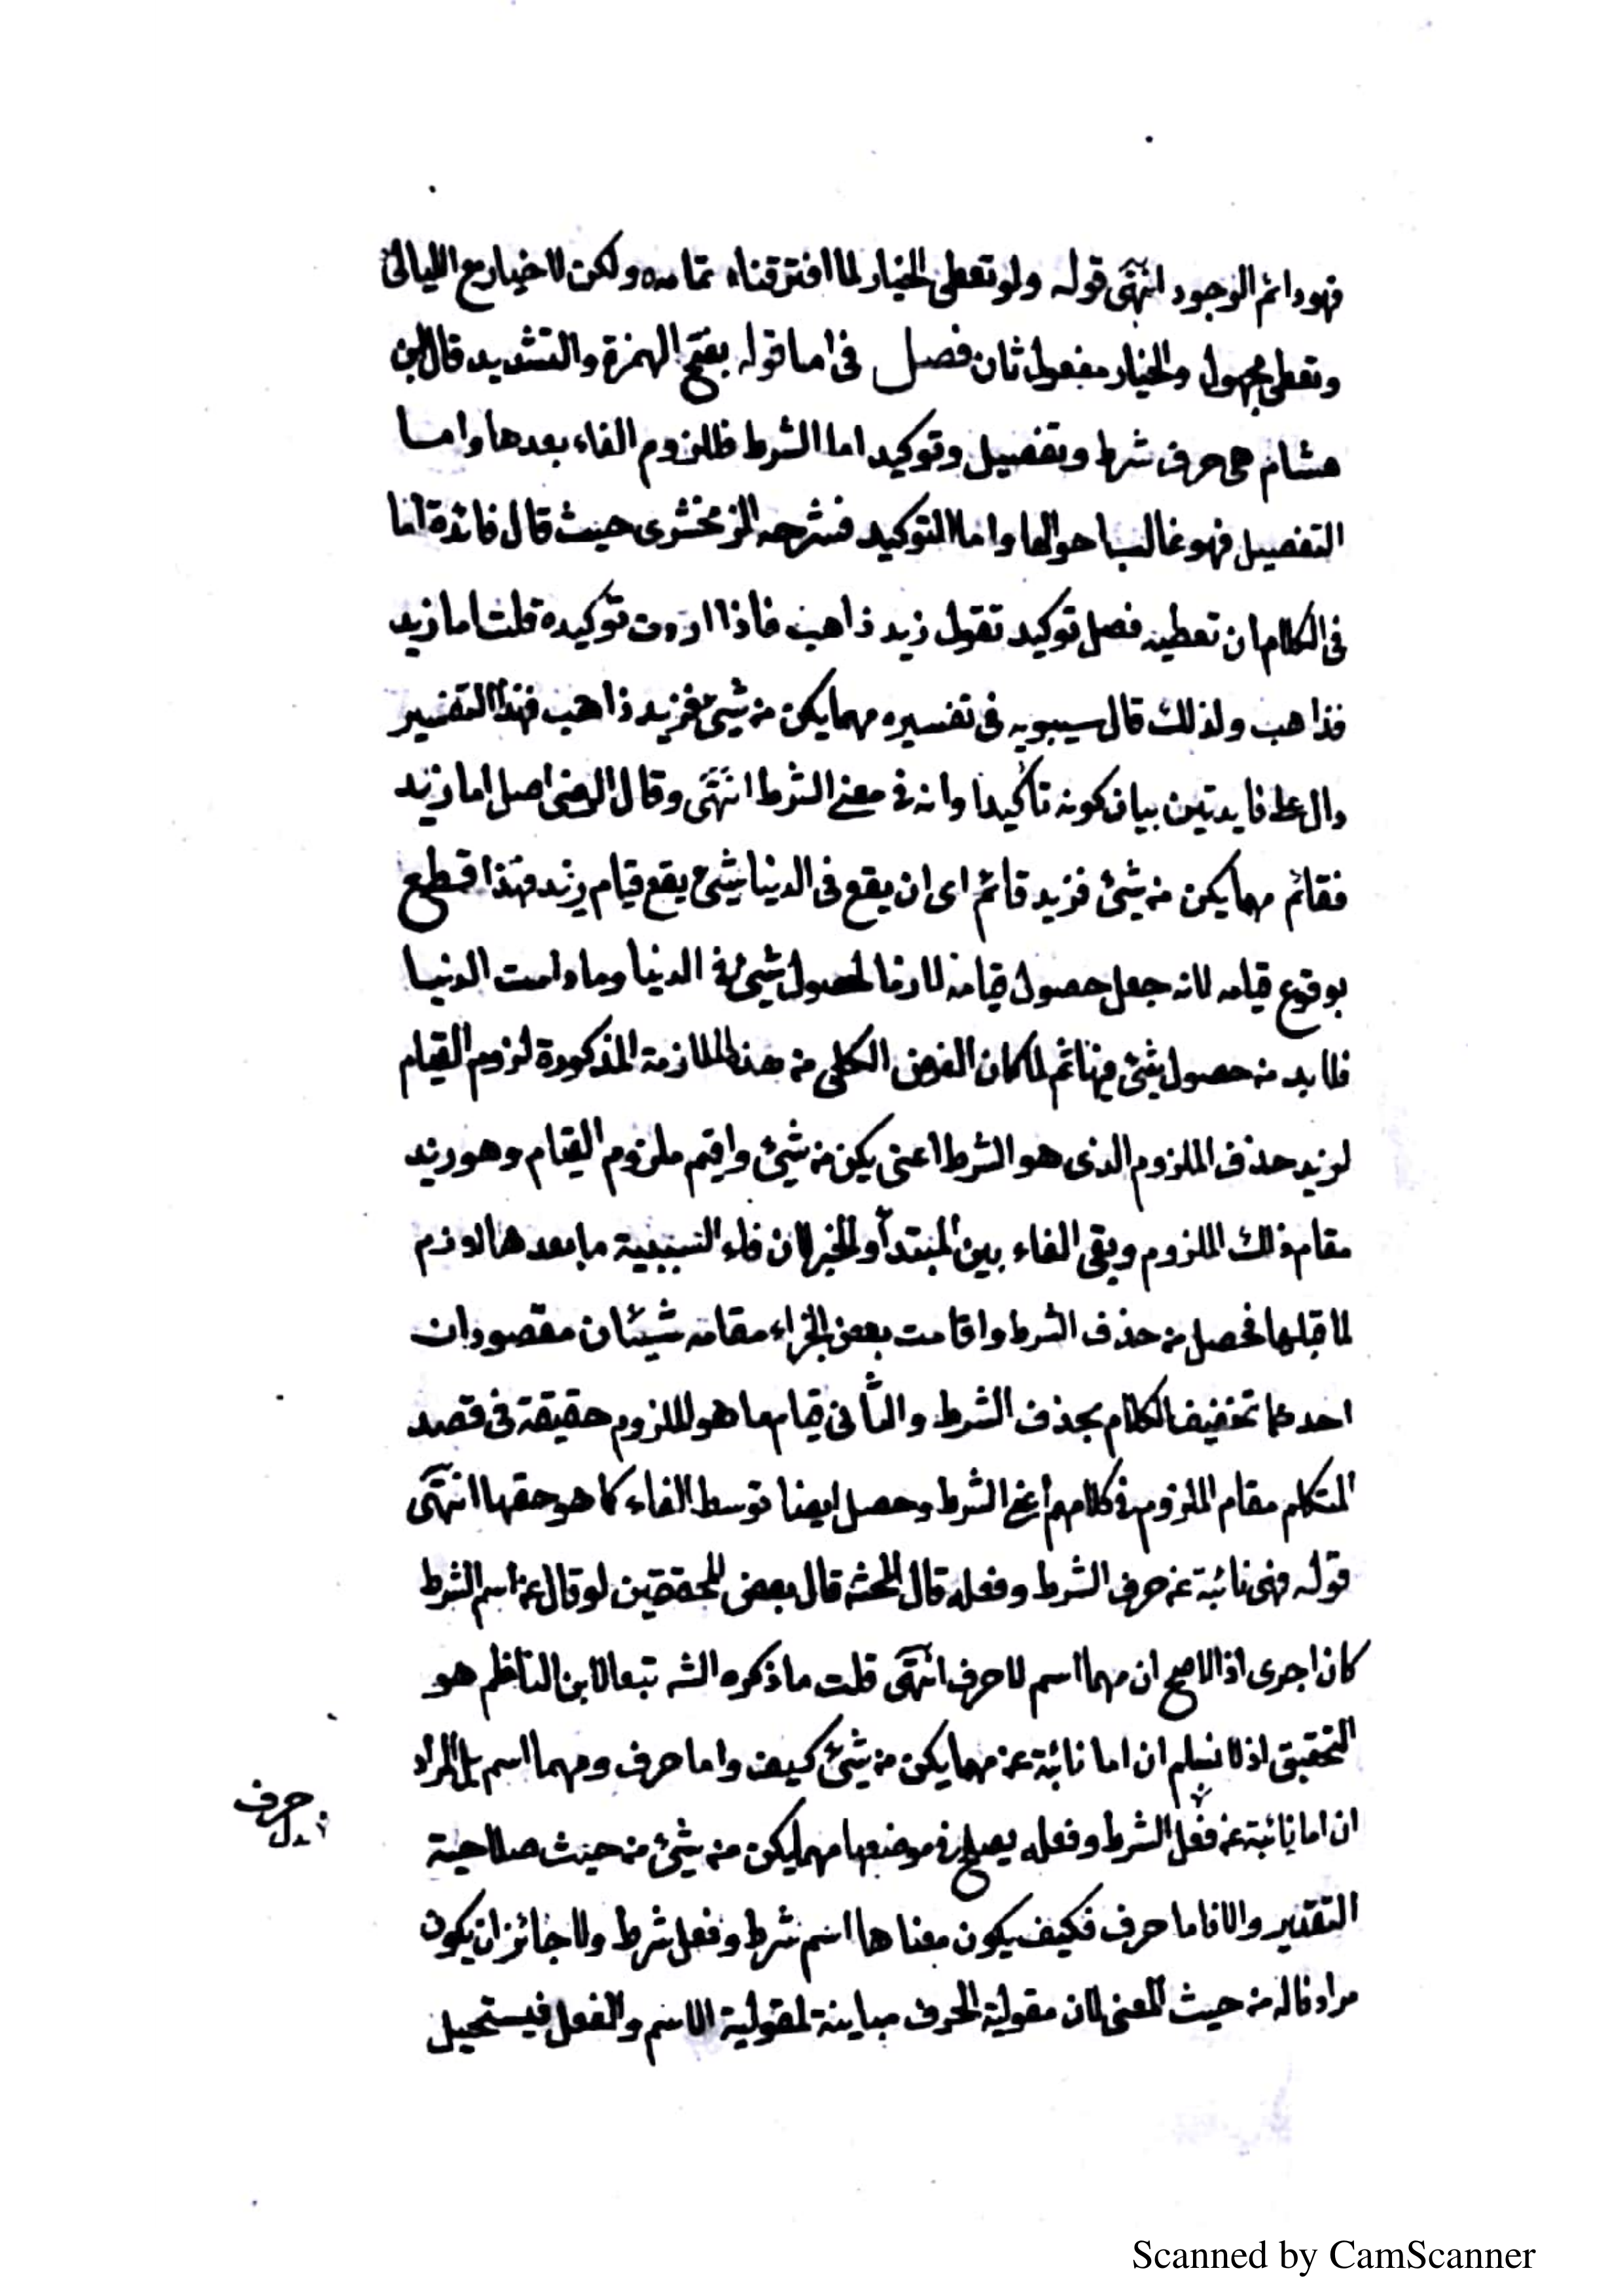 فهو دائم الوجود انتهى قوله ولو تعطى الخيار لما افترقناه تمامه ولكن لا خيار مع الليالى
وتعطى مجهول والخيار مفعول ثان فصل فى اما قوله بفتح الهمزة والتشديد قال ابن
هشام هى حرف شرط وتفصيل وتوكيد اما الشرط فللزوم الفاء بعدها واما
التفصيل فهو غالب احوالها واما التوكيد فشرحه الزمخشرى حيث قال فائدة اما
فى الكلام ان تعطيه فصل توكيد تقول زيد ذاهب فاذا اردت توكيده قلت اما زيد
فذاهب ولذلك قال سيبويه فى تفسيره مهما يكن من شئ فزيد ذاهب فهذا التفسير
دال على فايدتين بيان كونه تأكيدا وانه فى معنى الشرط انتهى وقال الرضى اصل اما زيد
فقائم مهما يكن من شئ فزيد قائم اى ان يقع فى الدنيا شئ يقع قيام زيد فهذا قطع
بوقوع قيامه لانه جعل حصول قيامه لازما لحصول شئ فى الدنيا وما دامت الدنيا
فلا بد من حصول شئ فيها ثم لما كان الغرض الكلى من هذه الملازمة المذكورة لزوم القيام
لزيد حذف الملزوم الذى هو الشرط اعنى يكن من شئ واقيم ملزوم القيام وهو زيد
مقام ذلك الملزوم وبقى الفاء بين المبتدأ والخبر لان فاء السببية ما بعدها لازم
لما قبلها فحصل من حذف الشرط واقامت بعض الجزاء مقامه شيئان مقصودان
احدهما تخفيف الكلام بحذف الشرط والثانى قيام ما هو الملزوم حقيقة فى قصد
المتكلم مقام الملزوم فى كلامهم أعنى الشرط وحصل ايضا توسط الفاء كما هو حقها انتهى
قوله فهى نائبة عن حرف الشرط وفعله قال المحشه قال بعض المحققين لو قال عن اسم الشرط
كان اجرى اذ الاصح ان مهما اسم لا حرف انتهى قلت ما ذكره الشه تبعا لابن الناظم هو
التحقيق اذ لا نسلم ان اما نائبة عن مهما يكن من شئ كيف واما حرف ومهما اسم بل المراد
ان اما نائبة عن فعل الشرط وفعله يصلح فى موضعها مهما يكن من شئ من حيث صلاحية
حرف
بدل
التقدير والا فاما حرف فكيف يكون معناها اسم شرط وفعل شرط ولا جائز ان يكون
مرادفا له من حيث المعنى لان مقولية الحرف مباينة لمقولية الاسم والفعل فيستحيل
Scanned by CamScanner